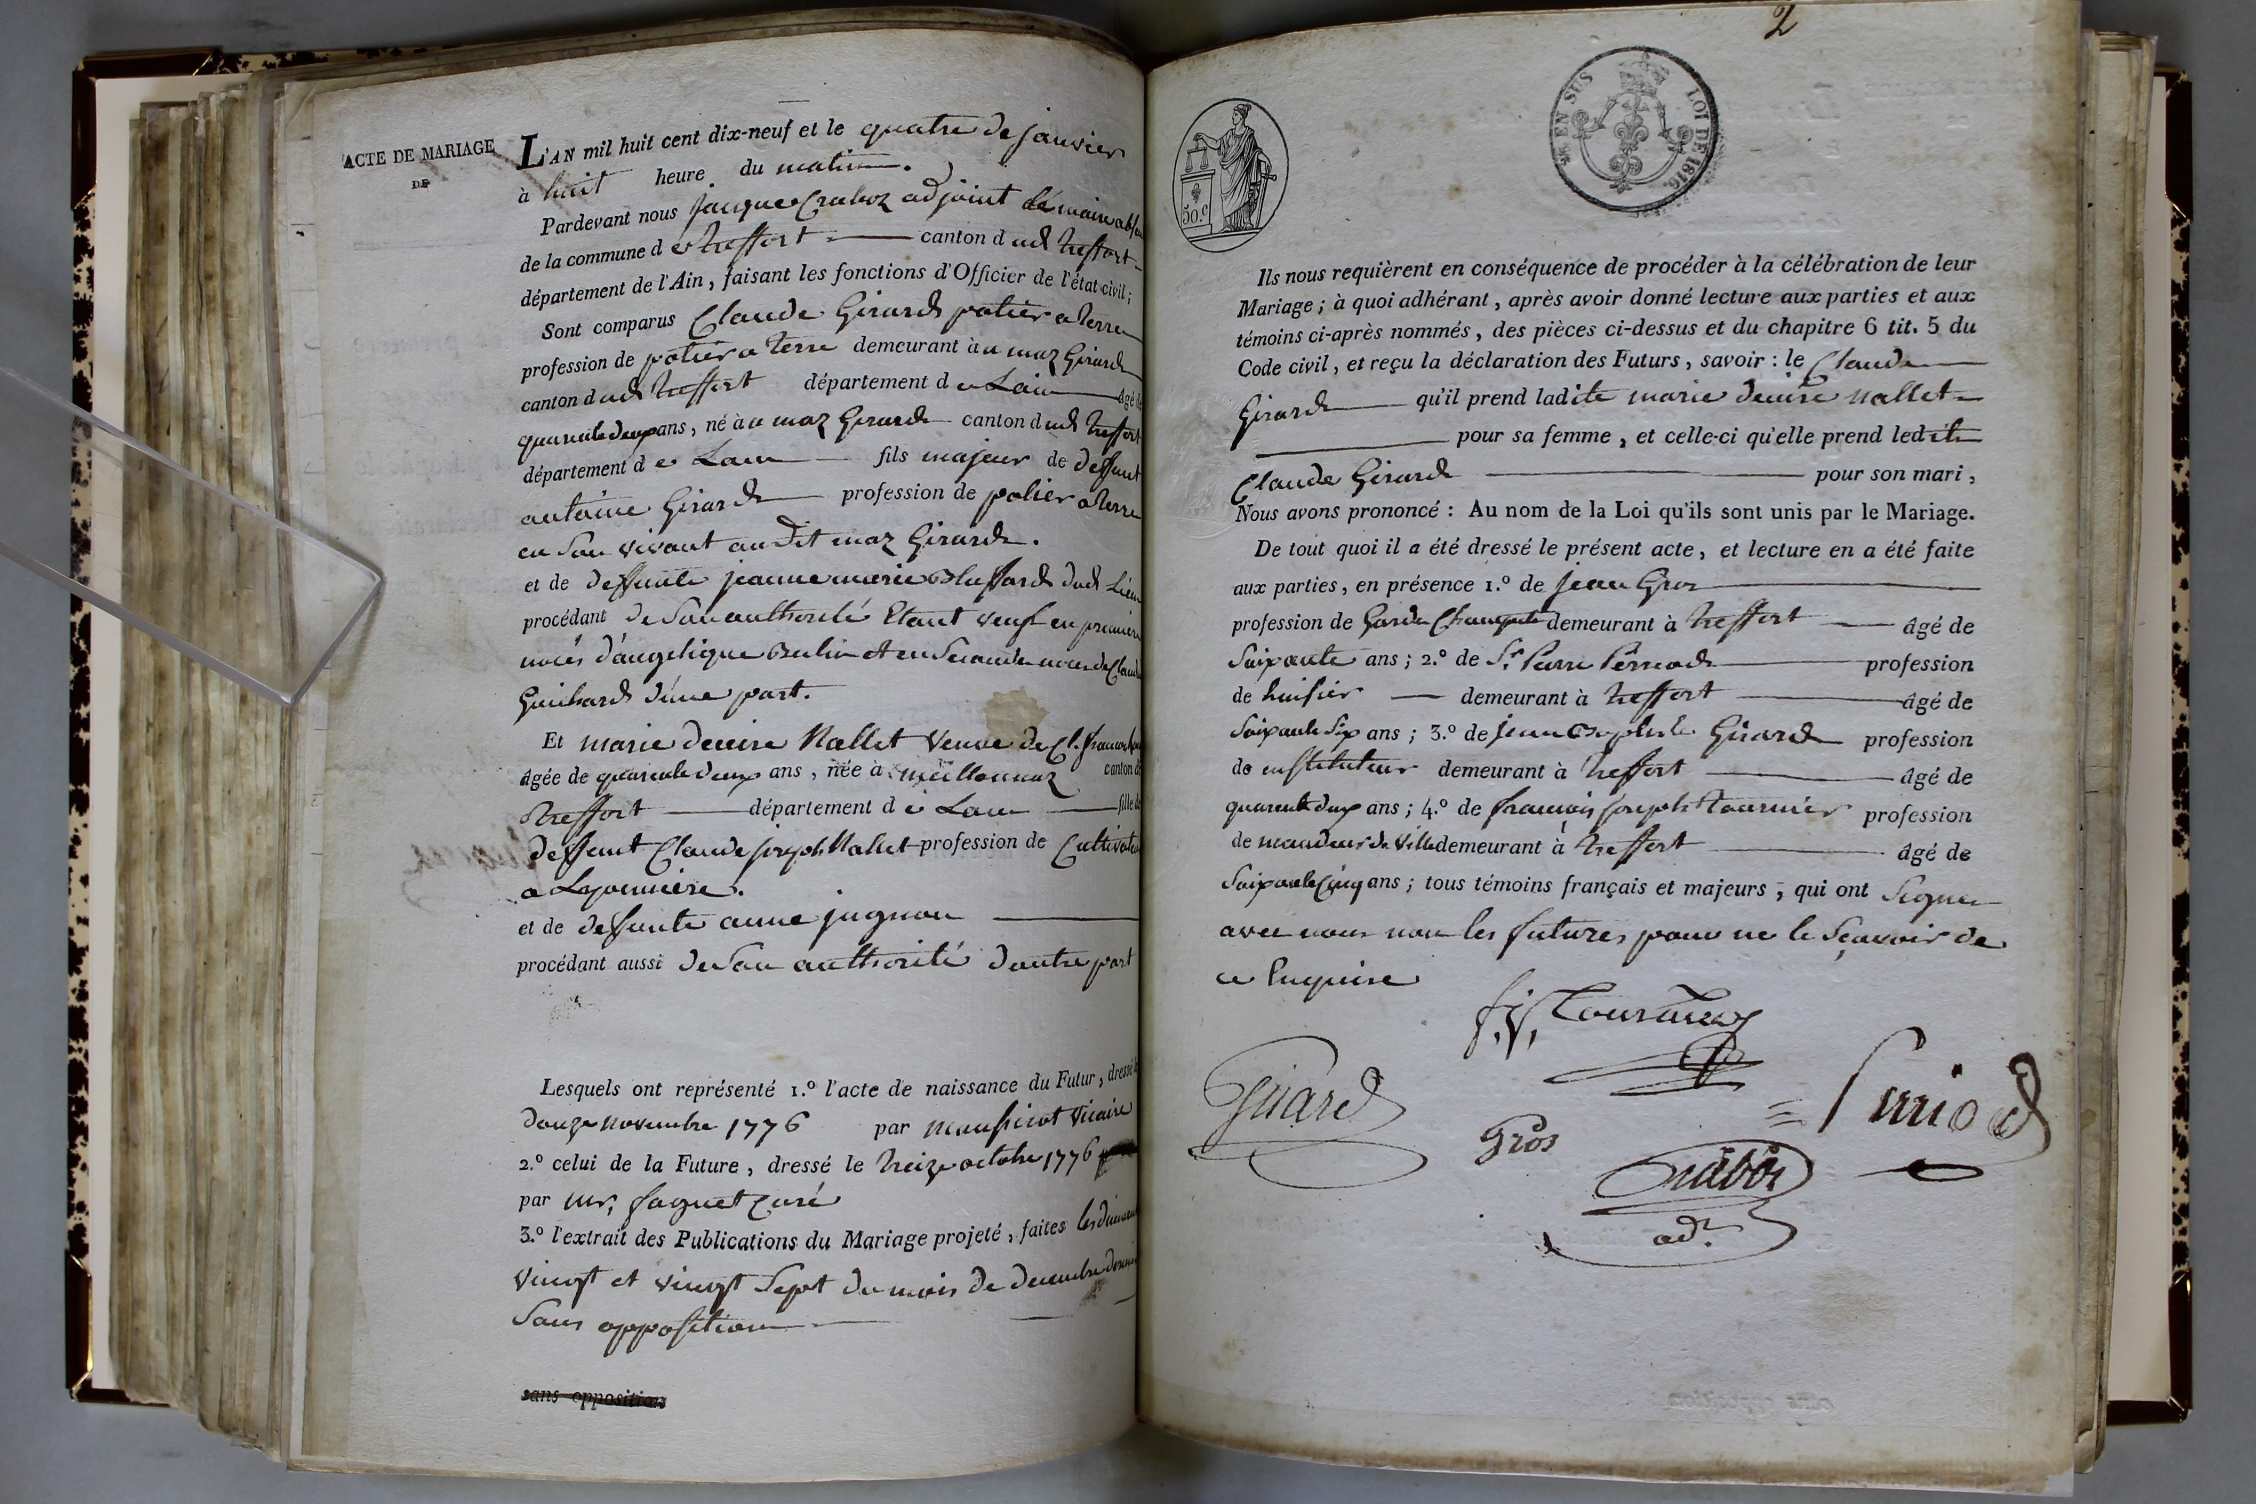 ACTE DE MARIAGE
DE
L'AN mil huit cent dix-neuf et le quatre de janvier
à huit heure du matin.
Pardevant nous jacque Craboz adjoint le maire abs
de la commune d e treffort canton d udt treffort
département de l'Ain, faisant les fonctions d'Officier de l'état civil;
Sont comparus Claude Girard potier a terre
profession de potier a terre demeurant à u maz Girard
canton d udt treffort département d e Lain âgé de
quarante deux ans, né à u maz Girard canton d udt treffort
département d e Lain fils majeur de deffunt
antoine Girard profession de potier a terre
en son vivant audit maz Girard.
et de deffunte jeanne marie Bluffard dudt Lieu
procédant de Son authorité Etant veuf en premiere
noces d'angelique Belin et en Seconde noces de Claud
Guichard d'une part.
Et marie deuire Nallet veuve de Cl. françois
âgée de quarante deux ans, née à meillonnaz canton de
treffort département d e Lain fille de
deffunt Claude joseph Nallet profession de Cultivate
a Lyonniere.
et de deffunte anne jugnon
procédant aussi de Son authorité dautre part
Lesquels ont représenté 1.º l'acte de naissance du Futur, dressé le
douze novembre 1776 par vicaire
2.º celui de la Future, dressé le treize octobre 1776
par mr. faguet Curé
3.º l'extrait des Publications du Mariage projeté, faites les dimanche
vingt et vingt Sept du mois de decembre dernier
Sans opposition
sans opposition
2
EN SUS
LOI DE 1816.
50.c
Ils nous requièrent en conséquence de procéder à la célébration de leur
Mariage; à quoi adhérant, après avoir donné lecture aux parties et aux
témoins ci-après nommés, des pièces ci-dessus et du chapitre 6 tit. 5 du
Code civil, et reçu la déclaration des Futurs, savoir: le Claude
Girard qu'il prend ladite marie deuire nallet
pour sa femme, et celle-ci qu'elle prend ledit
Claude Girard pour son mari,
Nous avons prononcé: Au nom de la Loi qu'ils sont unis par le Mariage.
De tout quoi il a été dressé le présent acte, et lecture en a été faite
aux parties, en présence 1.º de jean Gros
profession de Garde Champete demeurant à treffort âgé de
Soixante ans; 2.º de Sr. Pierre Perriod profession
de huissier demeurant à treffort âgé de
Soixante Six ans; 3.º de jean Baptiste Girard profession
de instituteur demeurant à treffort âgé de
quarente deux ans; 4.º de francois joseph tournier profession
de mandeur de ville demeurant à treffort âgé de
Soixante Cinq ans; tous témoins français et majeurs, qui ont Signer
avec nous non les futures pour ne le Sçavoir de
ce Enquise
f. j. Tournier
Girard
Perriod
Gros
Crabos
adt.